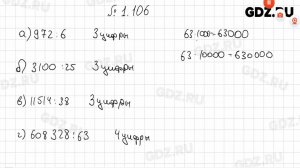 GDZ.RU
№ 1.106
а) 972 : 6 3 цифры
б) 3100 : 25 3 цифры
в) 11514 : 38 3 цифры
г) 608 328 : 63 4 цифры
63·1000=63000
63·10000=630000